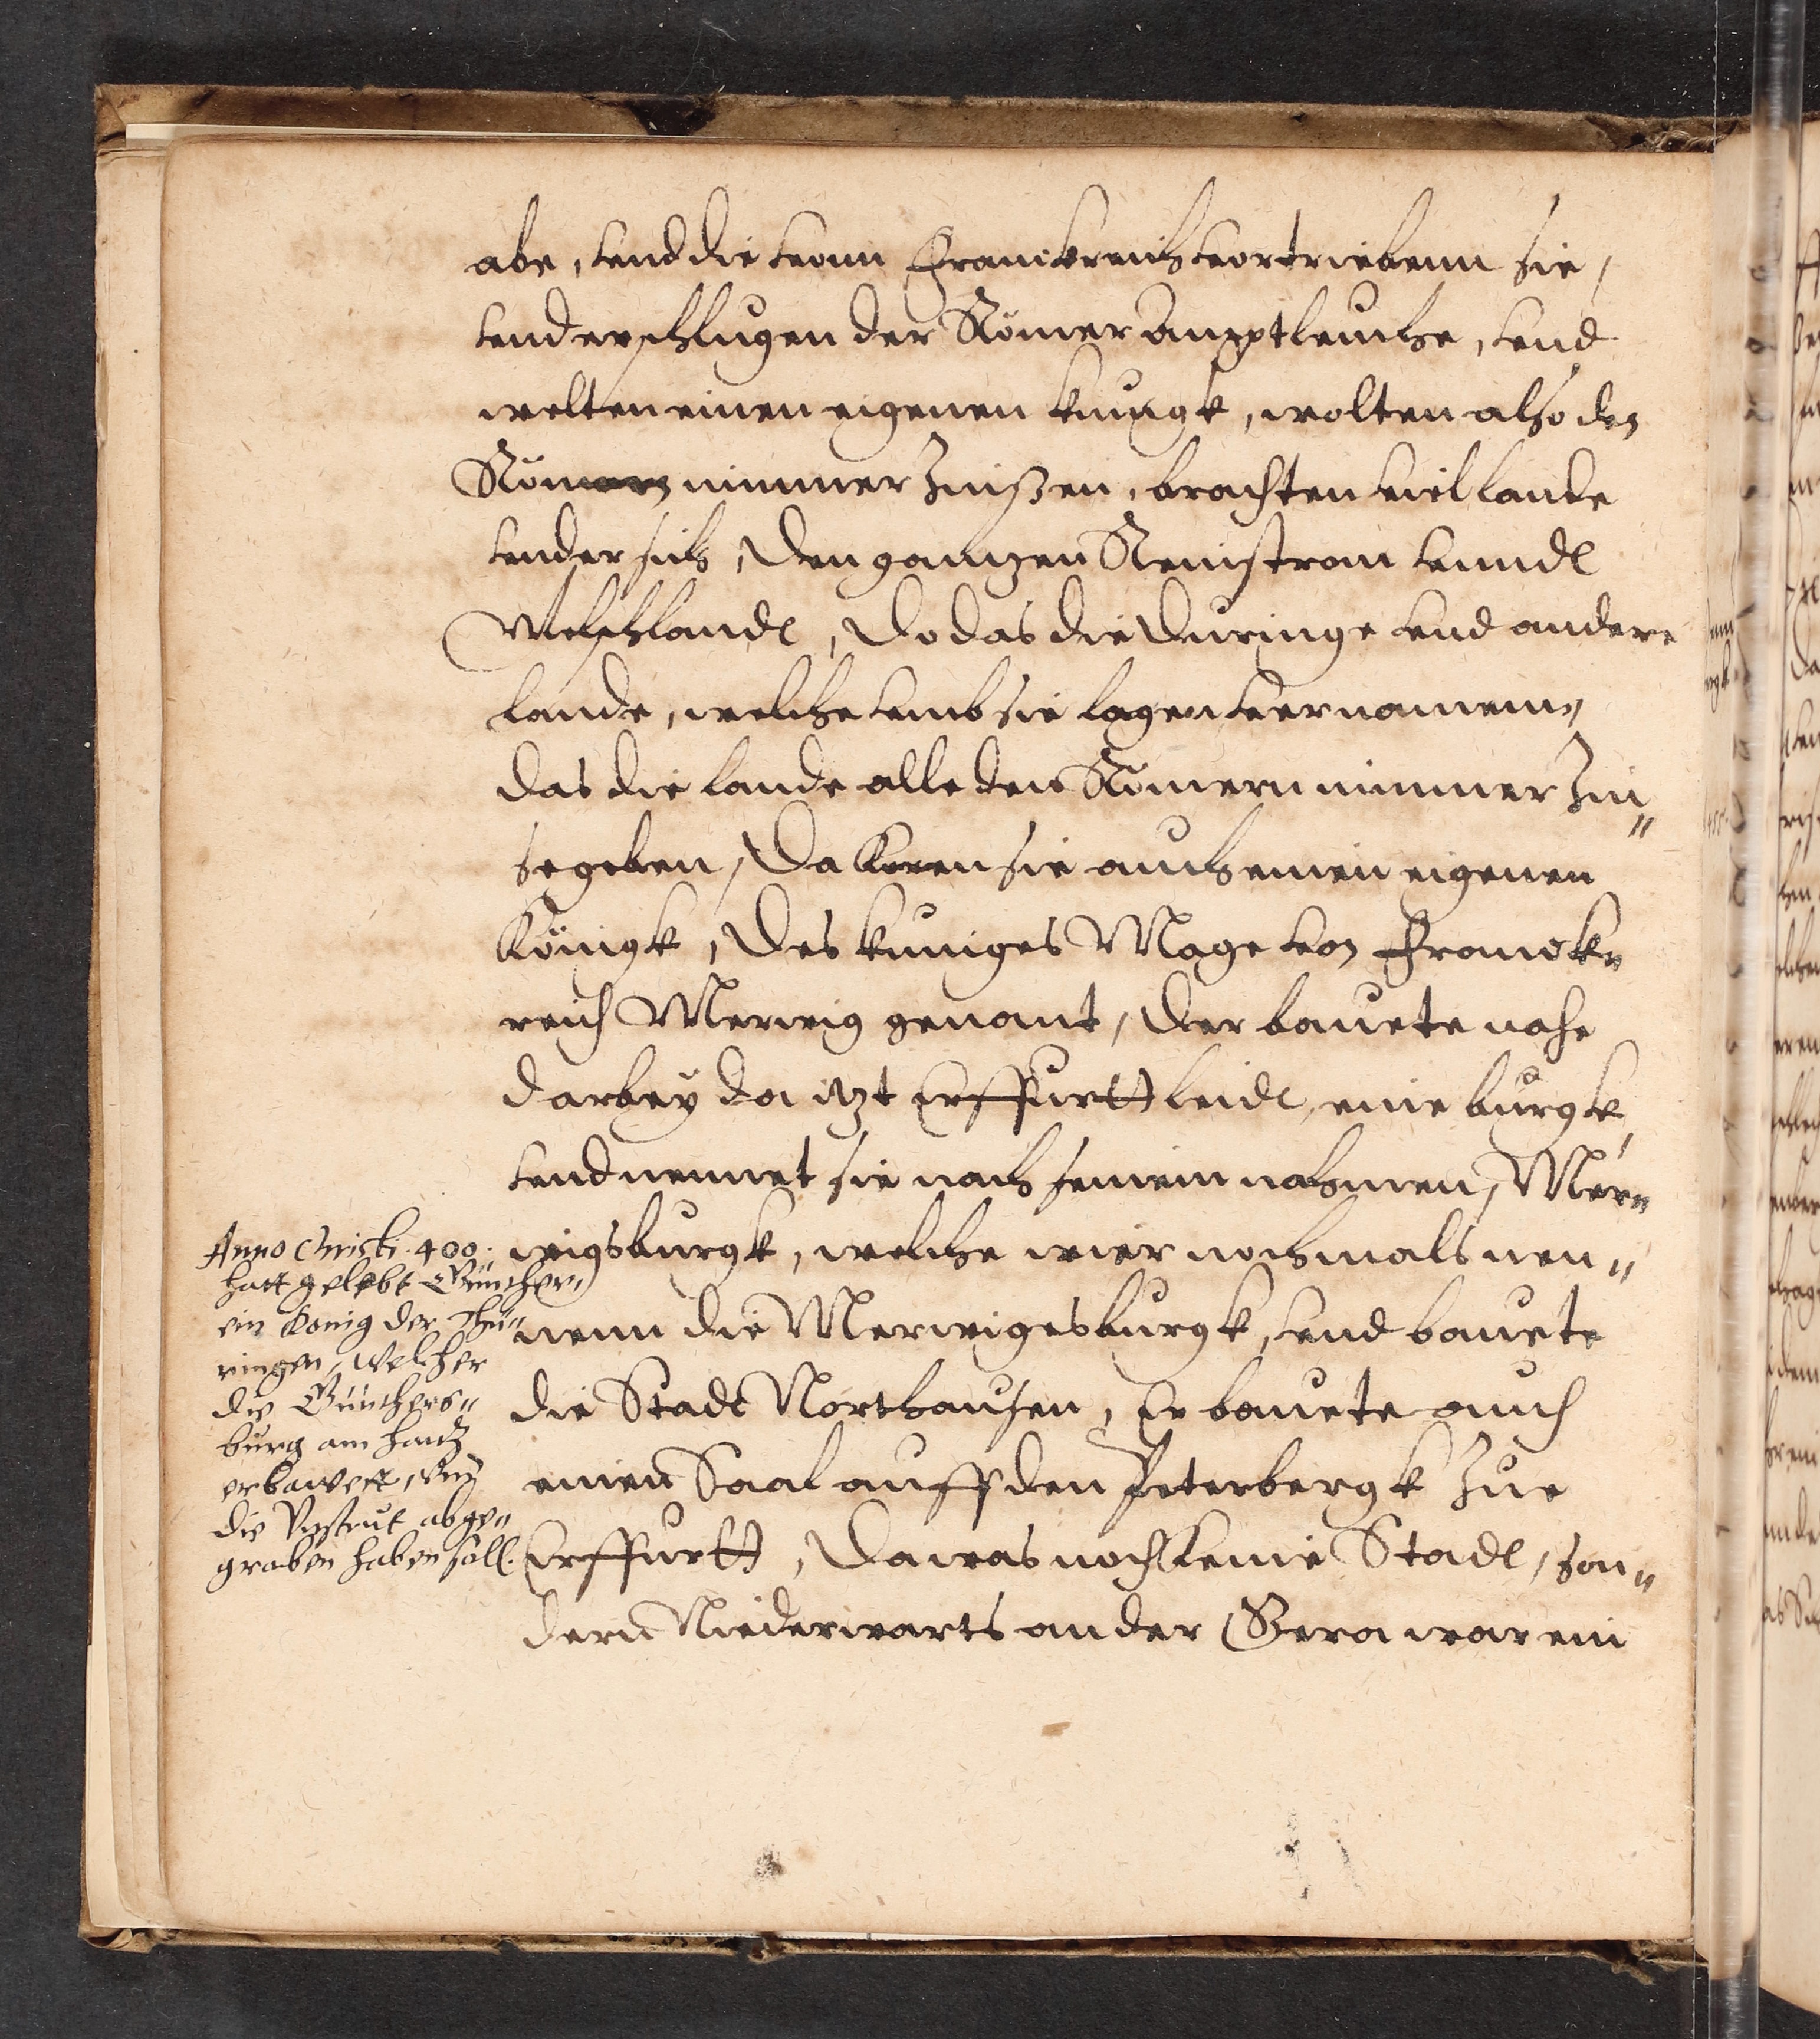 abe, vnd die vonn Franckreich vortriebenn sie,
vnd erschlugen der Römer Amptleuthe, vnd
welten einen eigenen kungk, wolten also den
Römern nimmer Zinßen, brachten viel lande
vnder sich, den gantzen Reinstrom vnndt
Welschlandt, Do das die Duringe vnd andere
lande, welche vmb sie lagen vernamenn,
das die lande alle den Römern nimmer Zin„
se geben, Da koren sie auch einen eigenen
Königk, des kuniges Mage von Franck„
reich Merwig genant, der bauete nahe
darbey da itzt Erffurtt leidt, eine burgk
vnd nennet sie nach seinem nahmen, Mer„
wigsburgk, welche wier nochmals nen„
nenn die Merwigesburgk, vnd bauete
die Stadt Northausen, Er bauete auch
einen Saal auff den Peterbergk Zue
Erffurtt, Da was noch keine Stadt, son„
dern Niederwarts an der Gera war ein
Anno Christi. 400.
hatt gelebt Günther„
ein König der Thü„
ringen, welcher
die Günthers„
burg am Hartz
erbawett, vnd
die Vnstrut abge„
graben haben soll.